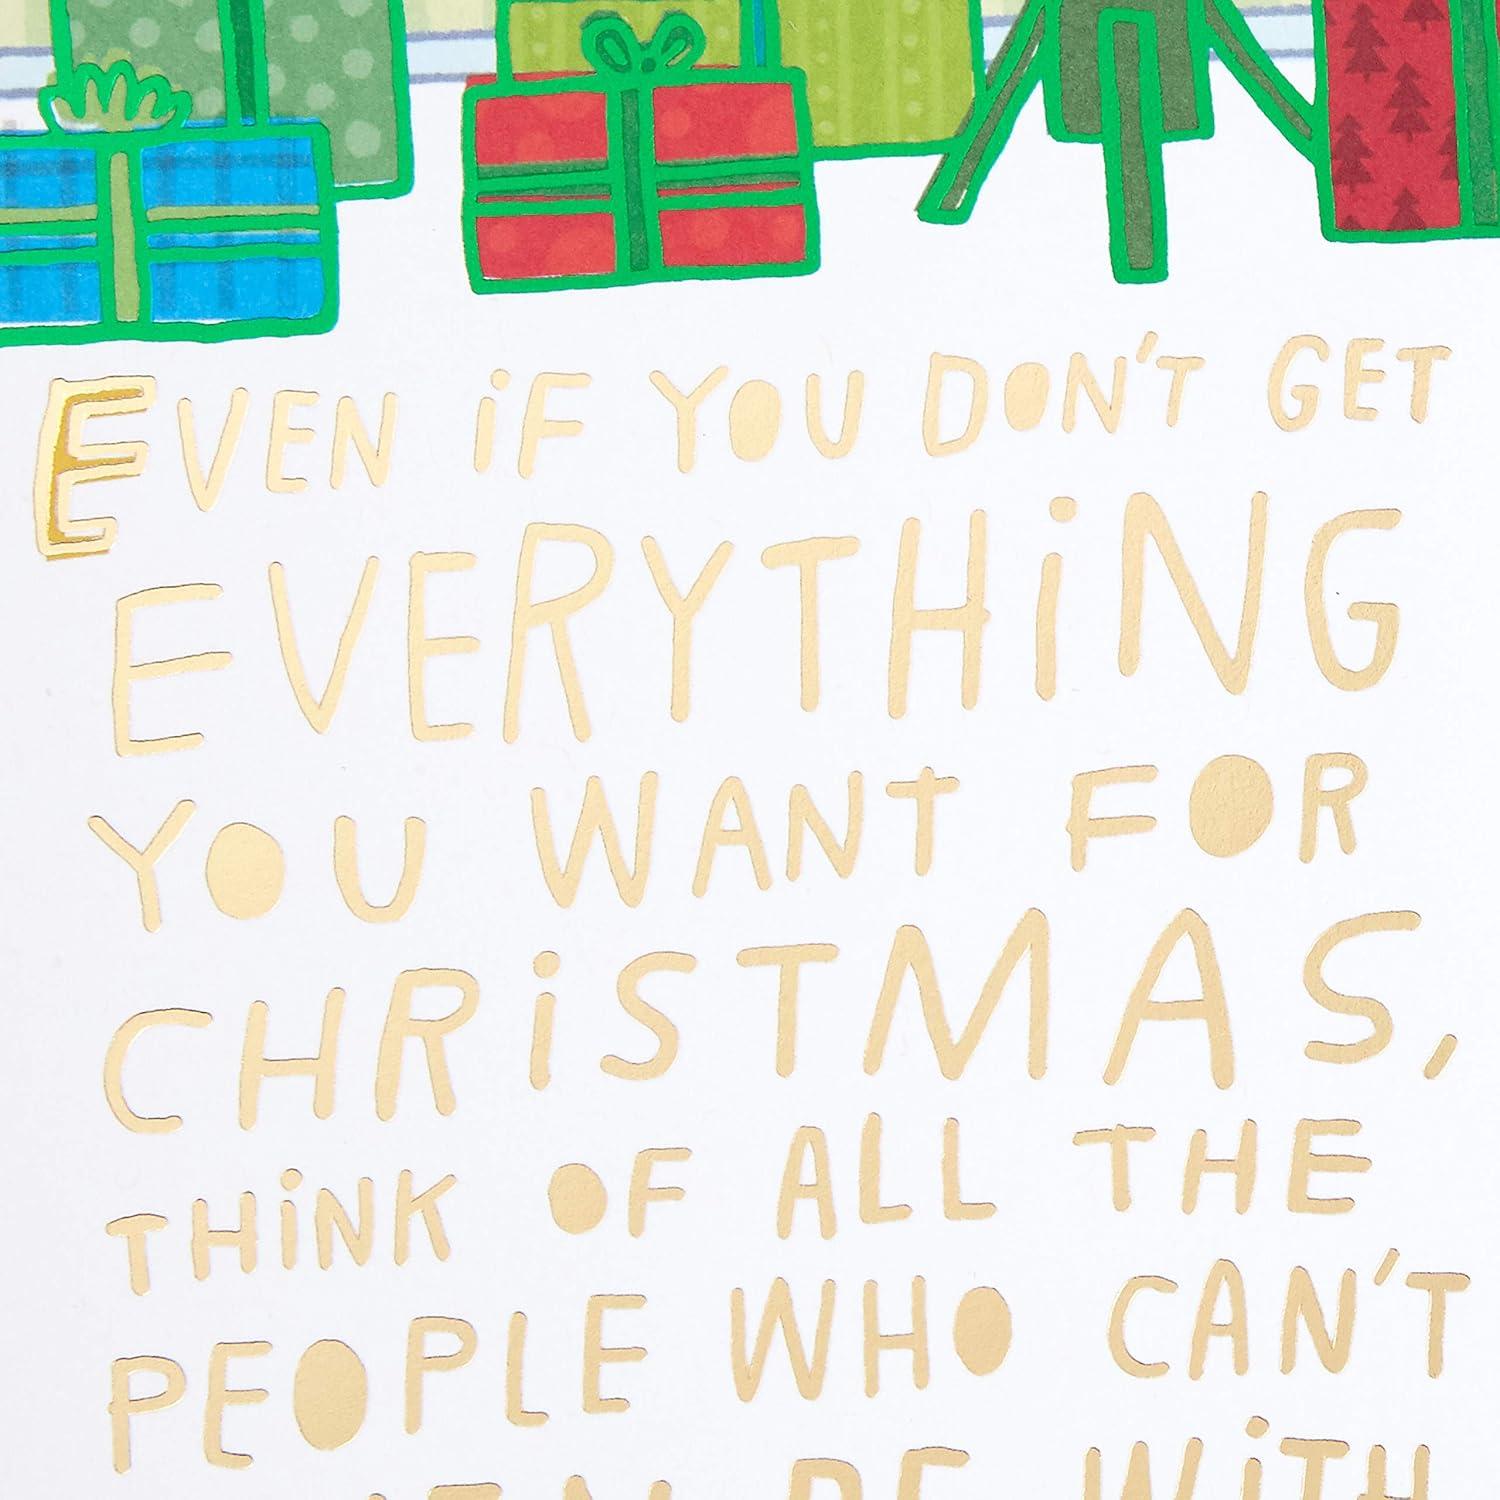 EVEN iF YOU DON'T GET
EVERYTHiNG
YOU WANT FOR
CHRiSTMAS,
THiNK OF ALL THE
PEOPLE WHO CAN'T
BE WiTH